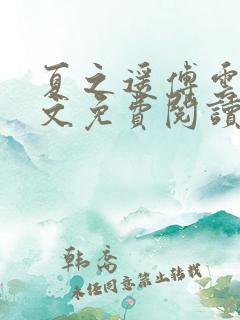 夏之遥傅雲
文免費閱讀
韩乔
未经同意禁止转载